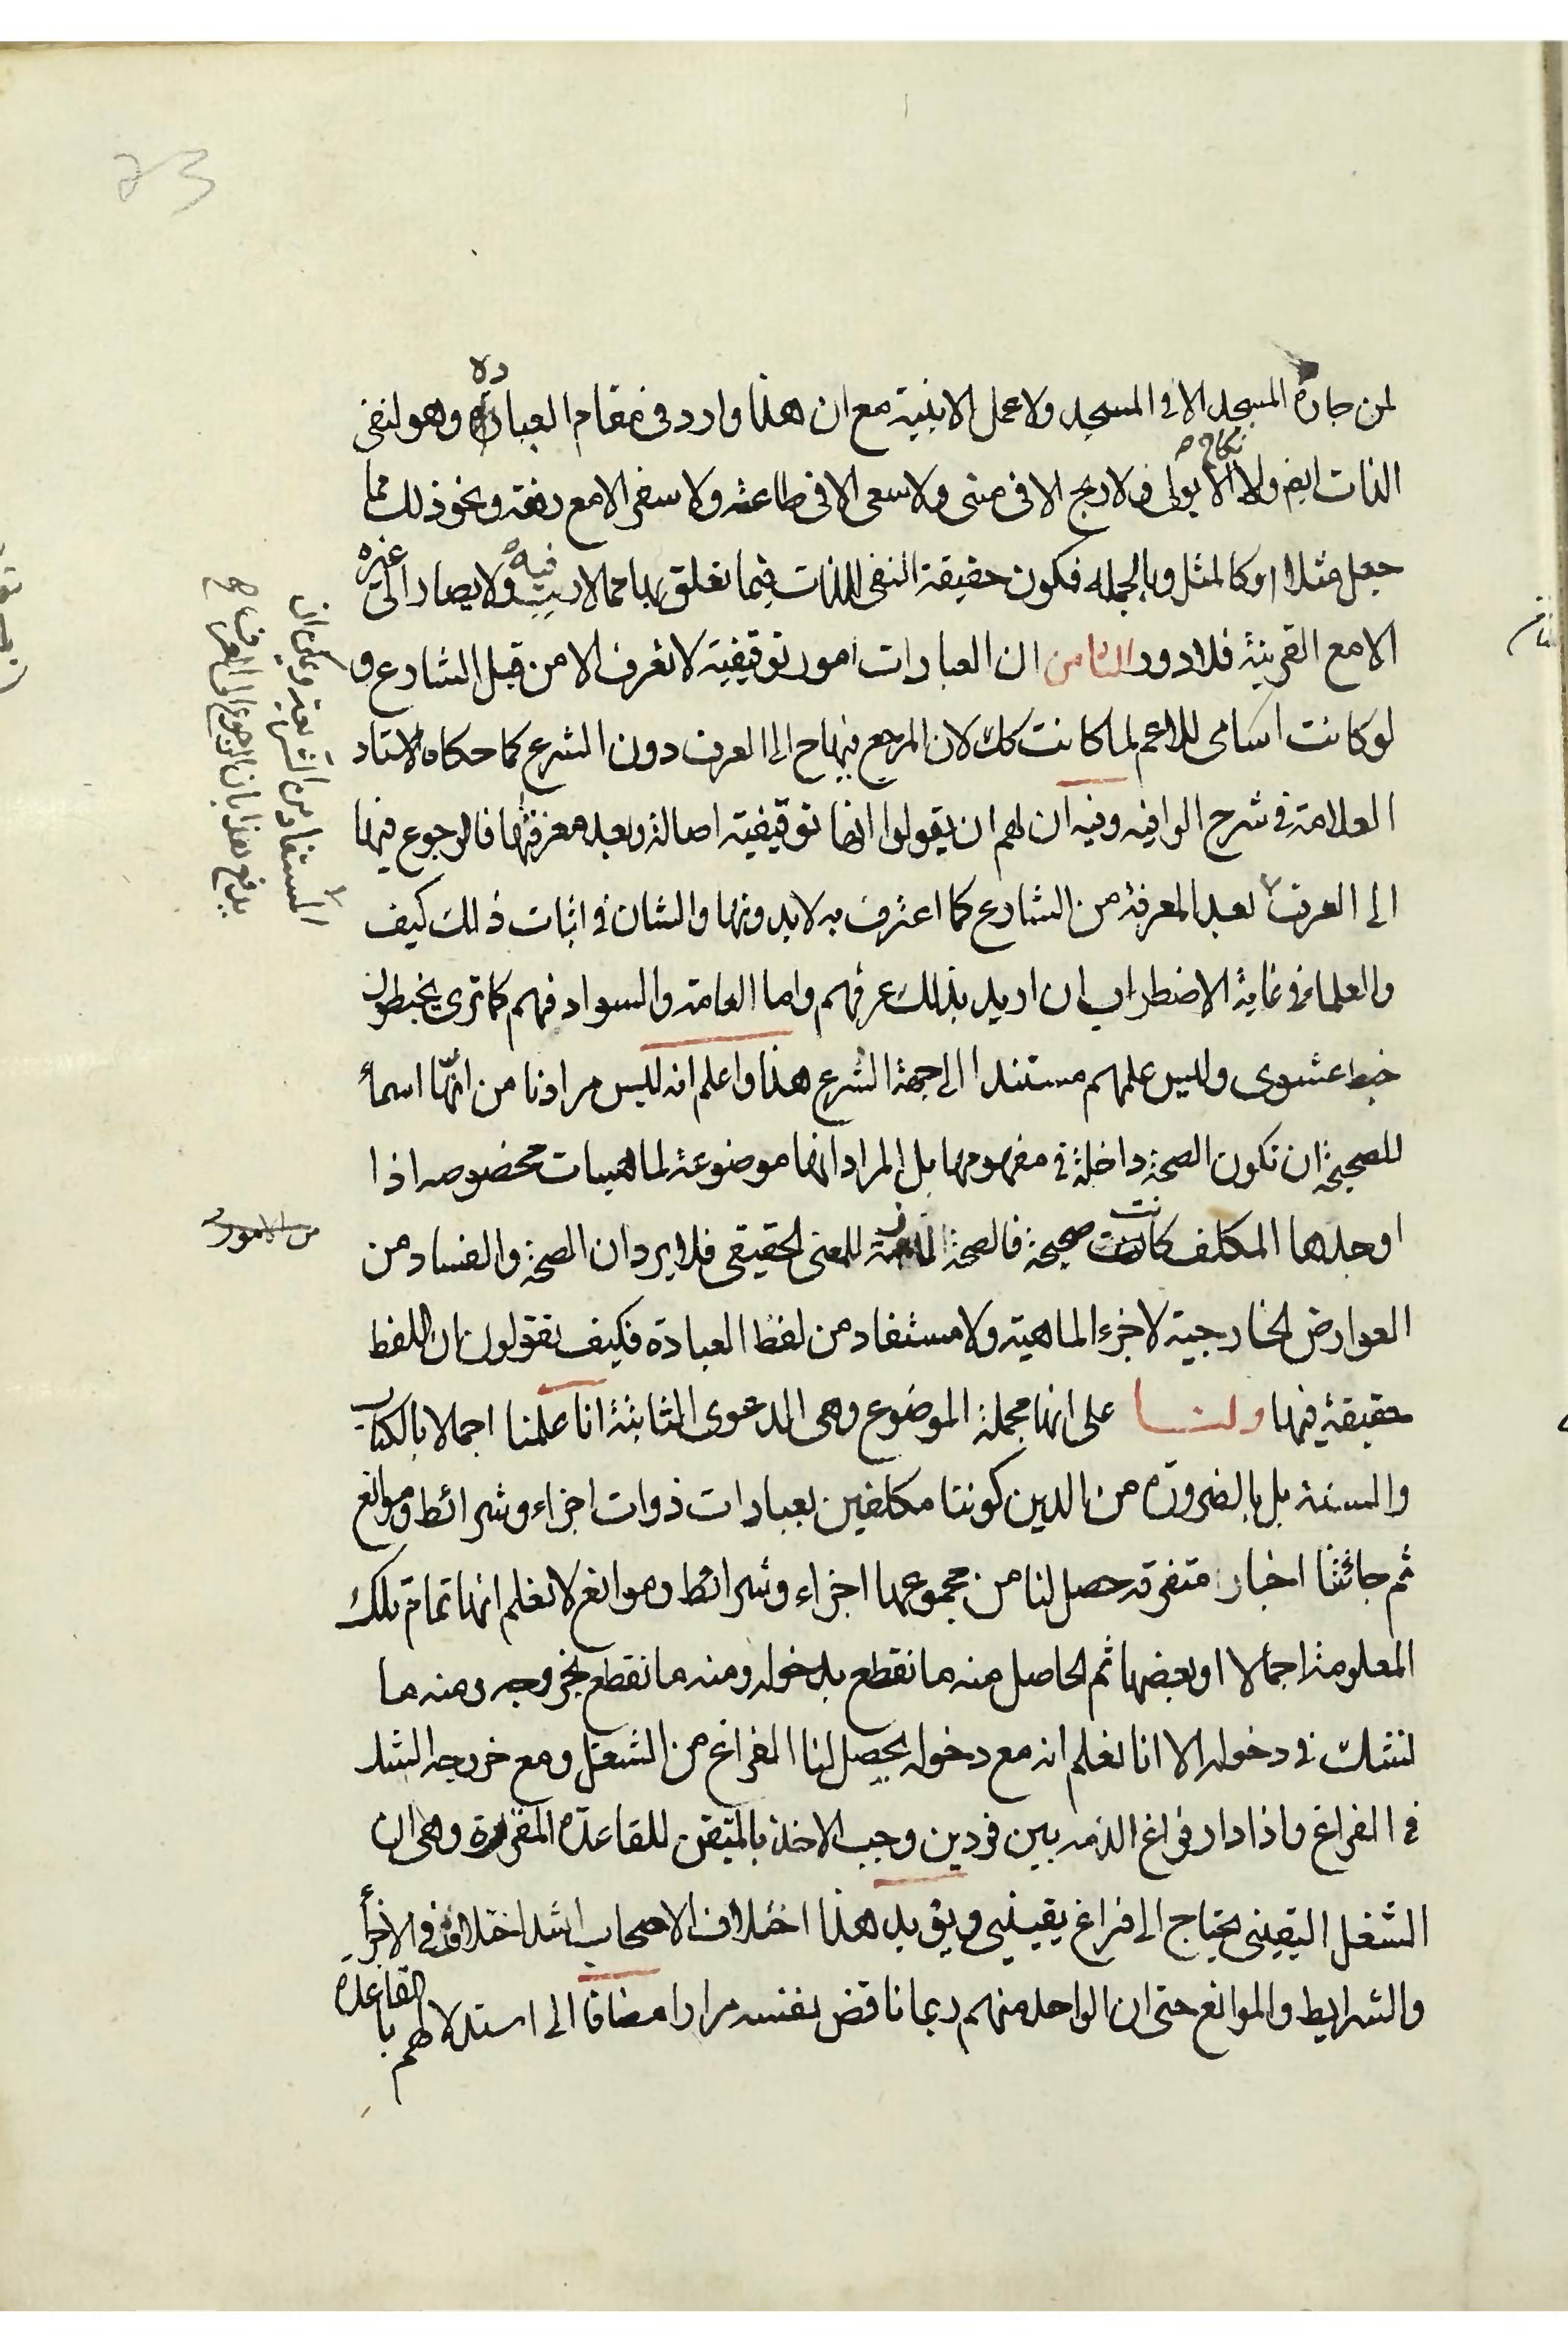 لمن جاره المسجد الا في المسجد ولا عمل الا بنية مع ان هذا وارد في مقام العبادة وهو لنفى
الذات ايضم ولا نكاح الا بولى ولا ربح الا في منى ولا سعى الا في طاعته ولا سفر الا مع رفقة ونحو ذلك مما
جعل مثلا او كالمثل وبالجملة فكون حقيقة النفى للذات فيما تعلق بها مما لا ريب فيه ولا يصار الى غيره
الا مع القرينة فلا دور الثامن ان العبادات امور توقيفية لا تعرف الا من قبل الشارع و
لو كانت اسامى للاعم لما كانت كك لان المرجع فيها ح الى العرف دون الشرع كما حكاه الاستاد
العلامة في شرح الوافيه وفيه ان لهم ان يقولوا انها توقيفية اصالة وبعد معرفتها فالرجوع فيها
الى العرف بعد المعرفة من الشارع كما اعترف به لا بدونها والشان في اثبات ذلك كيف
والعلماء في غاية الاضطراب ان اريد بذلك عرفهم واما العامة والسواد فهم كما ترى يخبطون
خبط عشوى وليس علمهم مستندا الى جهة الشرع هذا واعلم انه ليس مرادنا من انها اسماء
للصحيحة ان تكون الصحة داخلة في مفهومها بل المراد انها موضوعة لماهيات مخصوصه اذا
اوجدها المكلف كانت صحيحة فالصحة لازمة للمعنى الحقيقى فلا يرد ان الصحة والفساد من
العوارض الخارجية لا جزء الماهية ولا مستفاد من لفظ العبادة فكيف تقولون ان اللفظ
حقيقة فيها ولنا على انها مجملة الموضوع وهى الدعوى الثانية انا علمنا اجمالا بالكتاب
والسنة بل بالضرورة من الدين كوننا مكلفين بعبادات ذوات اجزاء وشرائط وموانع
ثم جائتنا اخبار متفرقه حصل لنا من مجموعها اجزاء وشرائط وموانع لا نعلم انها تمام تلك
المعلومة اجمالا او بعضها ثم الحاصل منه ما نقطع بدخوله ومنه ما نقطع بخروجه ومنه ما
نشك في دخوله الا انا نعلم انه مع دخوله يحصل لنا الفراغ من الشغل ومع خروجه الشك
في الفراغ واذا دار فراغ الذمه بين فردين وجب الاخذ بالمتيقن للقاعدة المقررة وهى ان
الشغل اليقينى يحتاج الى فراغ يقينى ويؤيد هذا اختلاف الاصحاب اشد اختلاف في الاجزاء
والشرايط والموانع حتى ان الواحد منهم ربما ناقض نفسه مرارا مضافا الى استدلالهم بالقاعدة
المستفاد من الشريعة ويمكن ان
يدفع هذا بان الرجوع الى العرف
من الامور